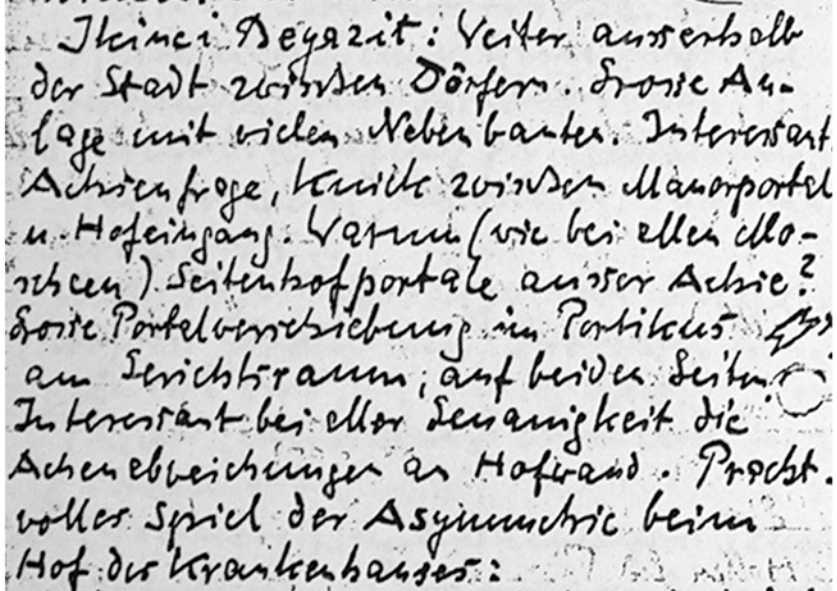 Ikinci Beyazit: Weiter ausserhalb
der Stadt zwischen Dörfern. Grosse An-
lage mit vielen Nebenbauten. Interessant
Achsenfrage, Knick zwischen Mauerportal
u. Hofeingang. Warum (wie bei allen Mo-
scheen) Seitenhofportale ausser Achse?
Grosse Portalverschiebung im Portikus
am Gerichtsraum, auf beiden Seiten
Interessant bei aller Genauigkeit die
Achenabweichungen an Hofwand. Pracht-
volles Spiel der Asymmetrie beim
Hof des Krankenhauses: